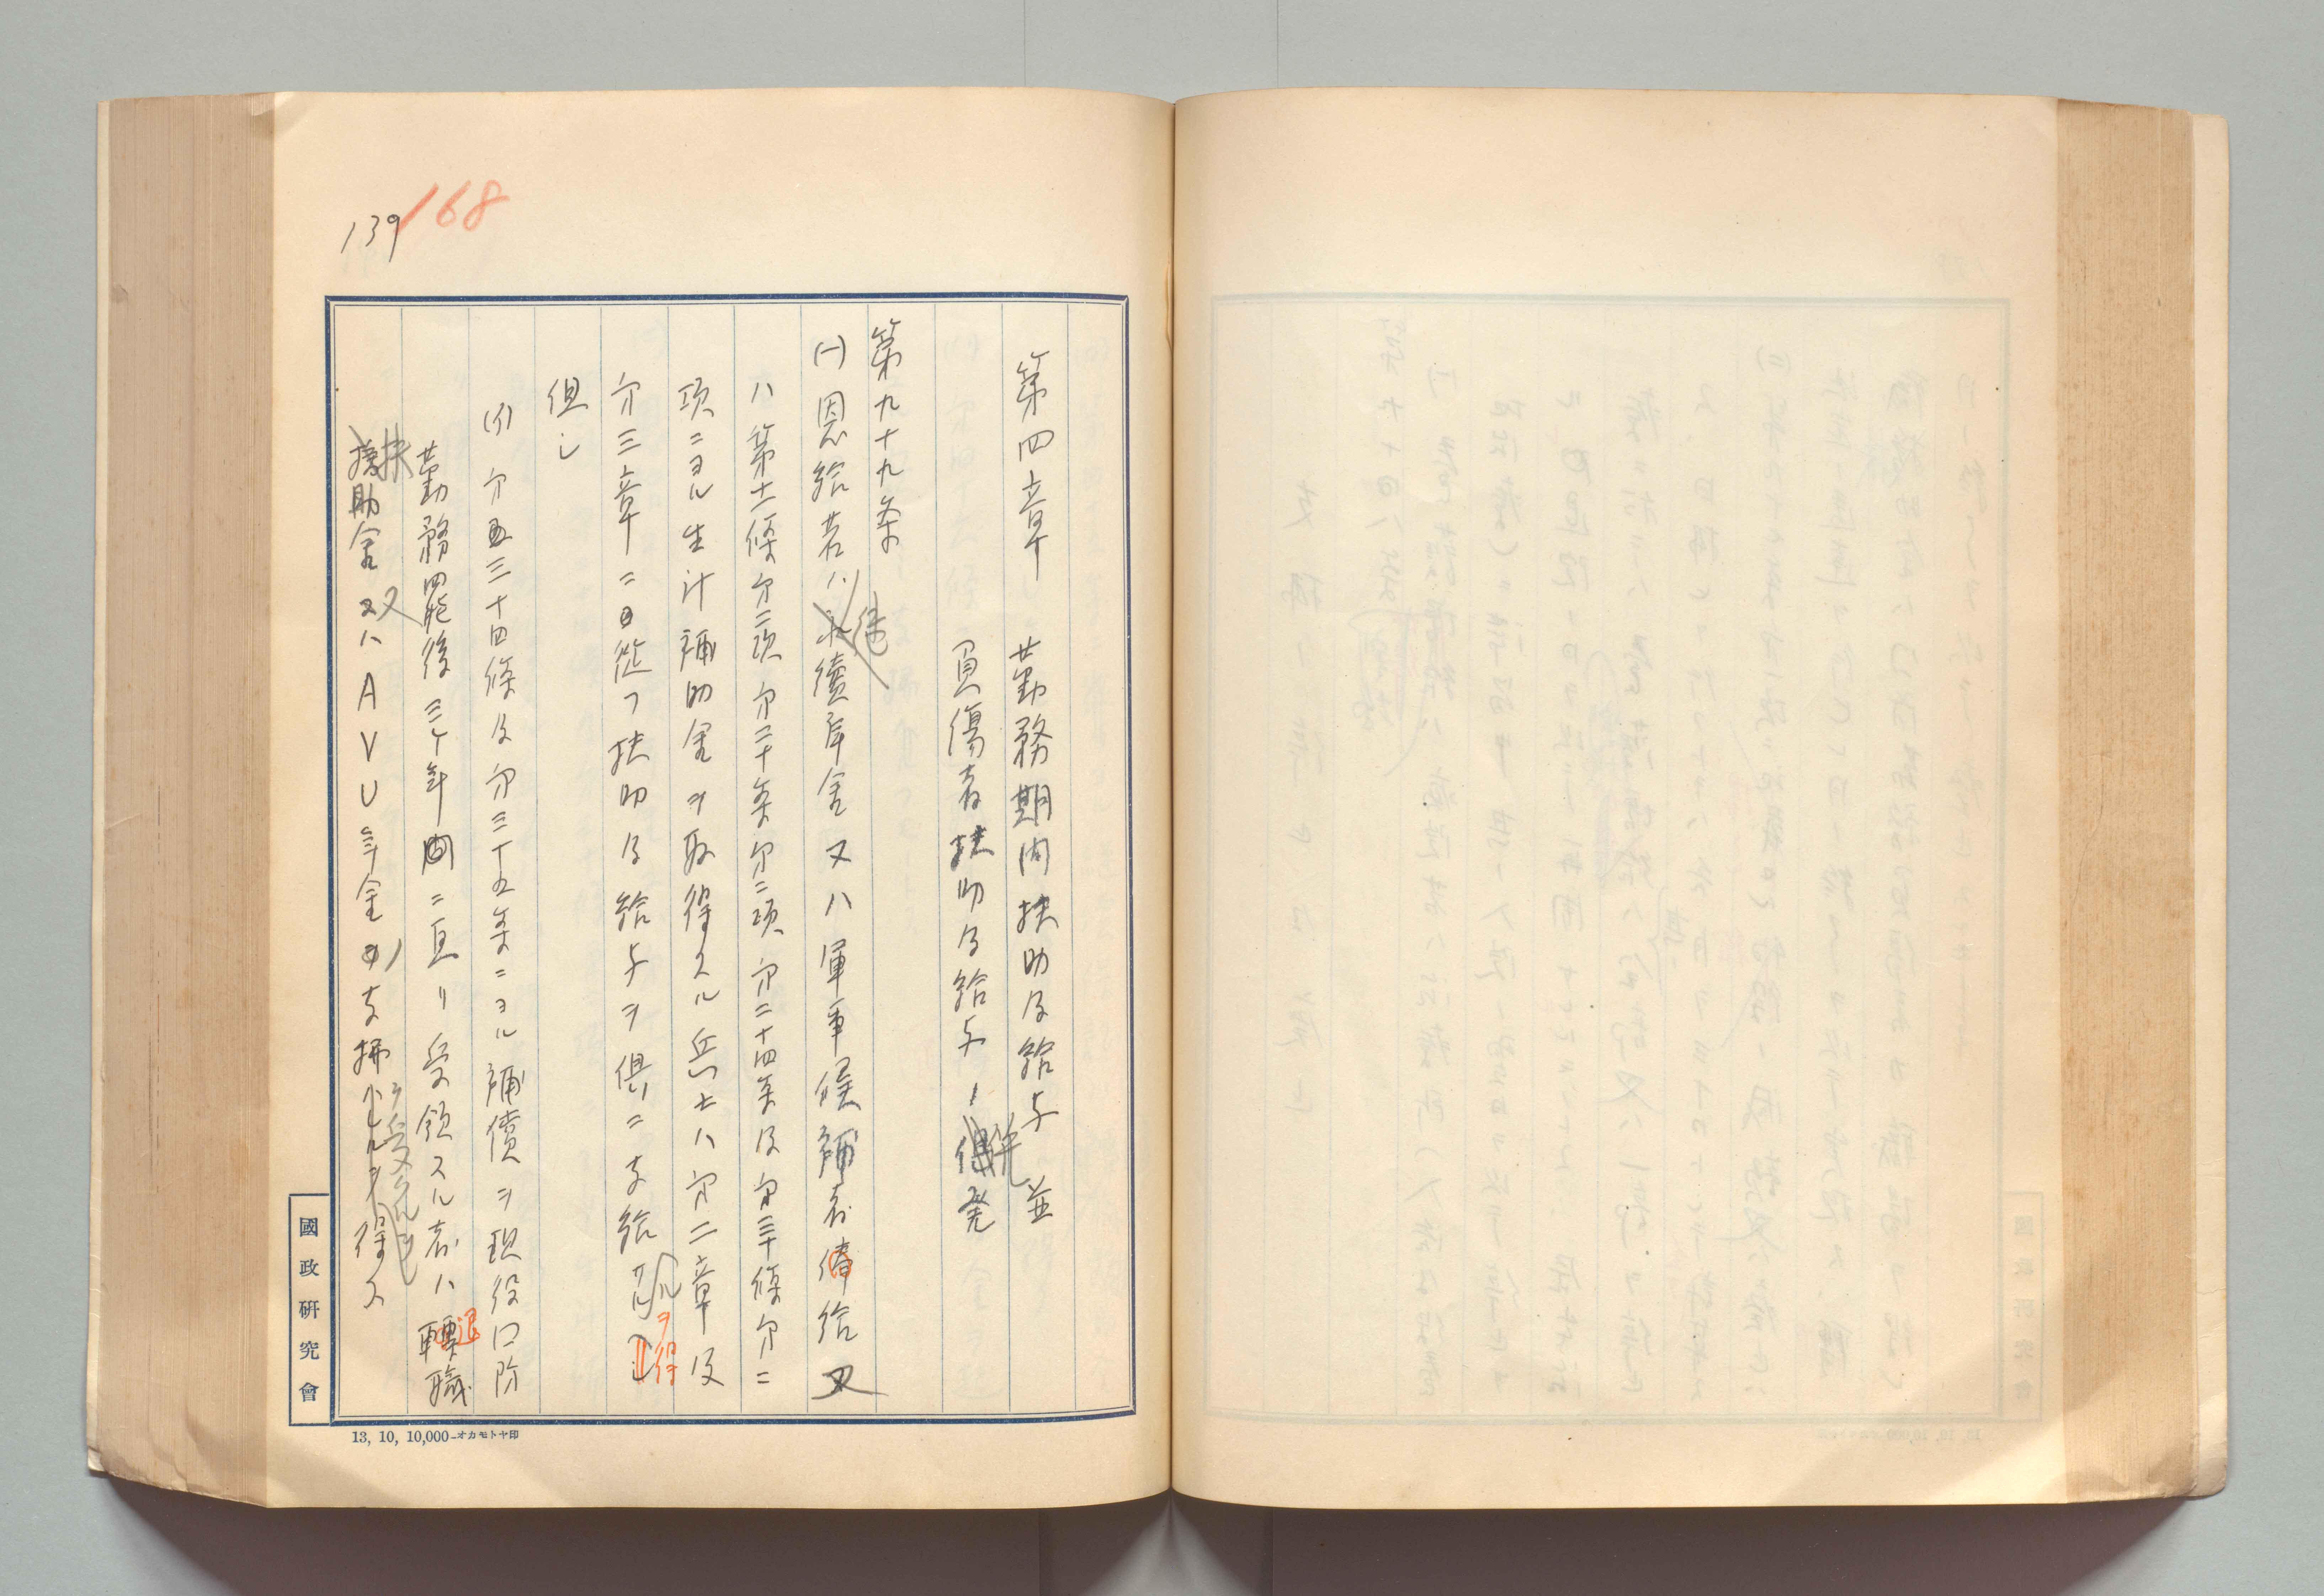 139
168
第四章 勤務期间扶助及給与 並
負傷者扶助及給与ノ併発
第九十九条
(一)恩給若ハ継續年金又ハ軍事候補者俸給又
ハ第十一條第二項、第二十条第二項、第二十四条及第三十條第二
項ニヨル生計補助金ヲ取得スル兵士ハ第二章及
第三章ニ従フ扶助及給与ヲ倶ニ支給サルヲ得
但シ
(イ)第三十四條及第三十五条ニヨル補償ヲ現役口防
勤務罷後三ケ年間ニ亘リ受領スル者ハ退職
扶助金又ハAVU年金ノ支拂ヲ受クルヲ得ス
國政研究會
13, 10, 10,000―オカモトヤ印